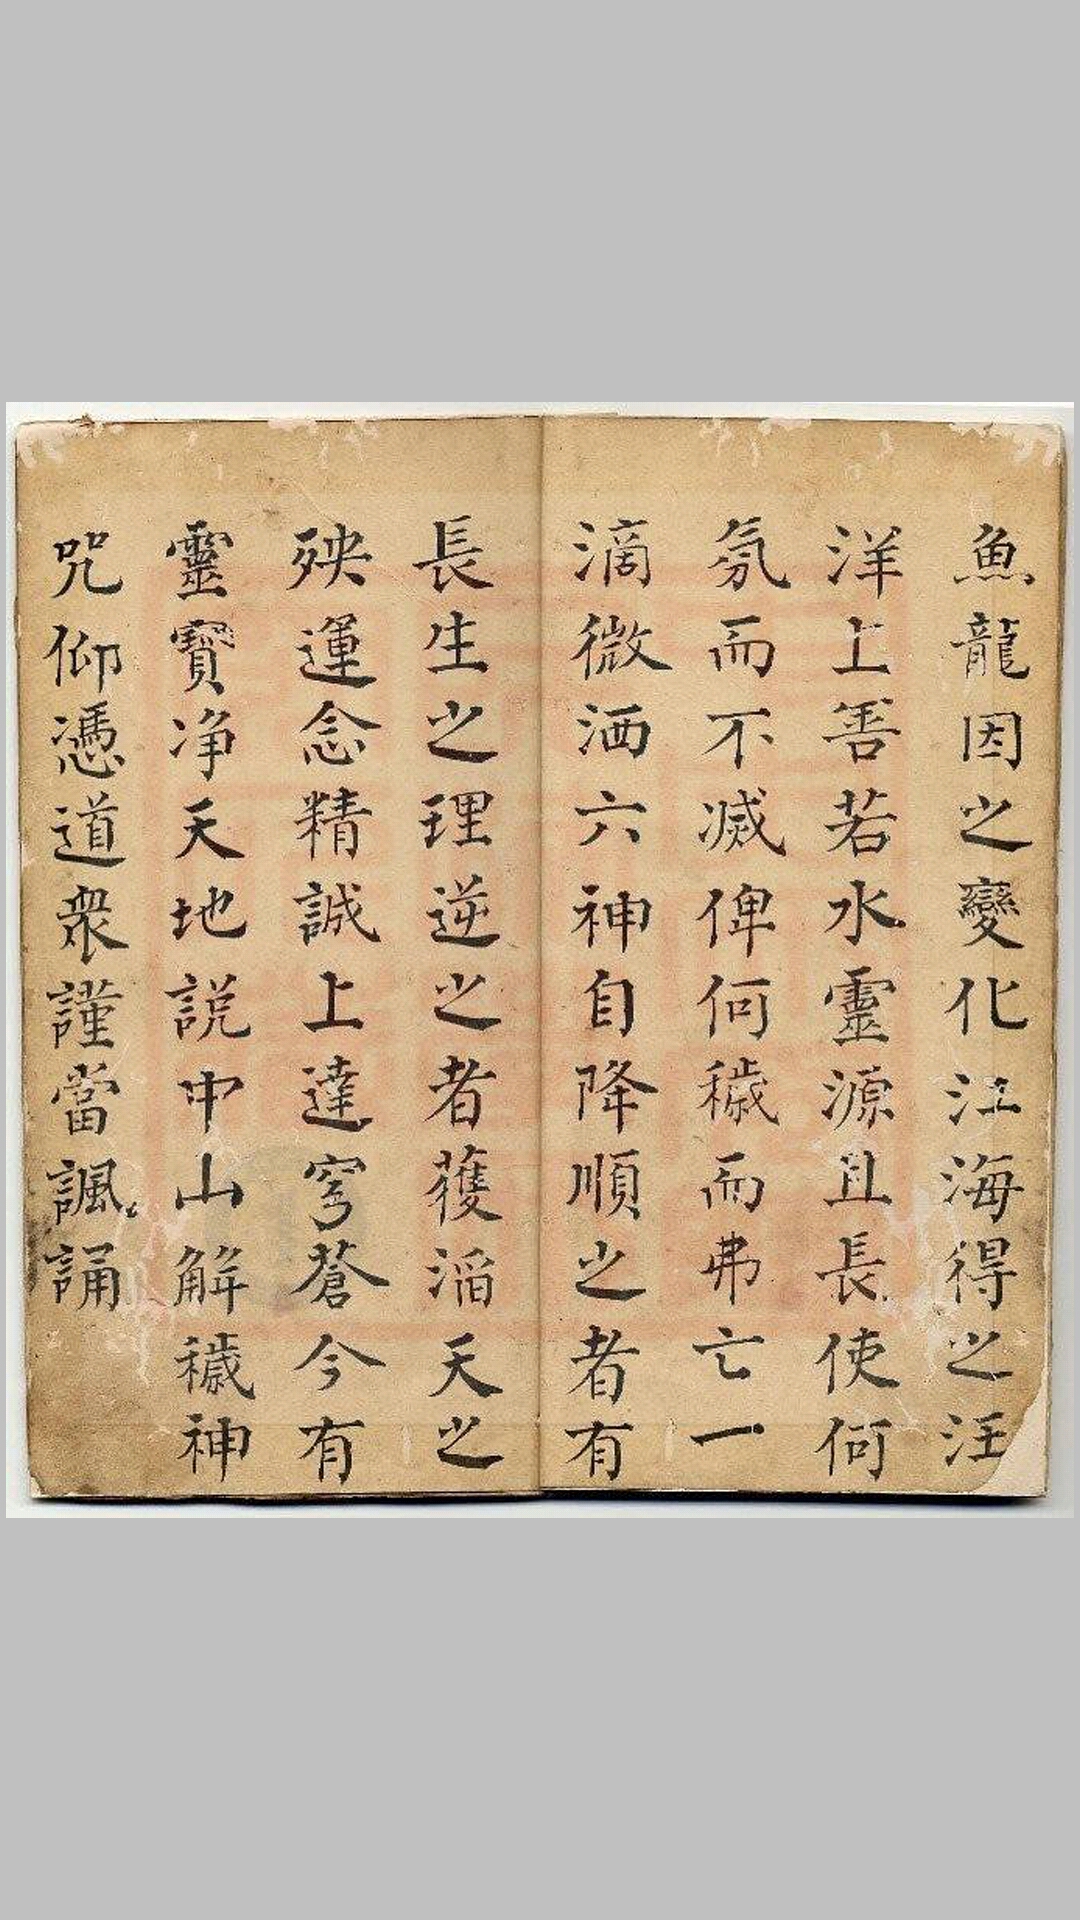 魚龍因之變化江海得之汪
洋上善若水靈源且長使何
氛而不滅俾何穢而弗亡一
滴微洒六神自降順之者有
長生之理逆之者獲滔天之
殃運念精誠上達穹蒼今有
靈寶净天地説中山解穢神
咒仰憑道衆謹當諷誦